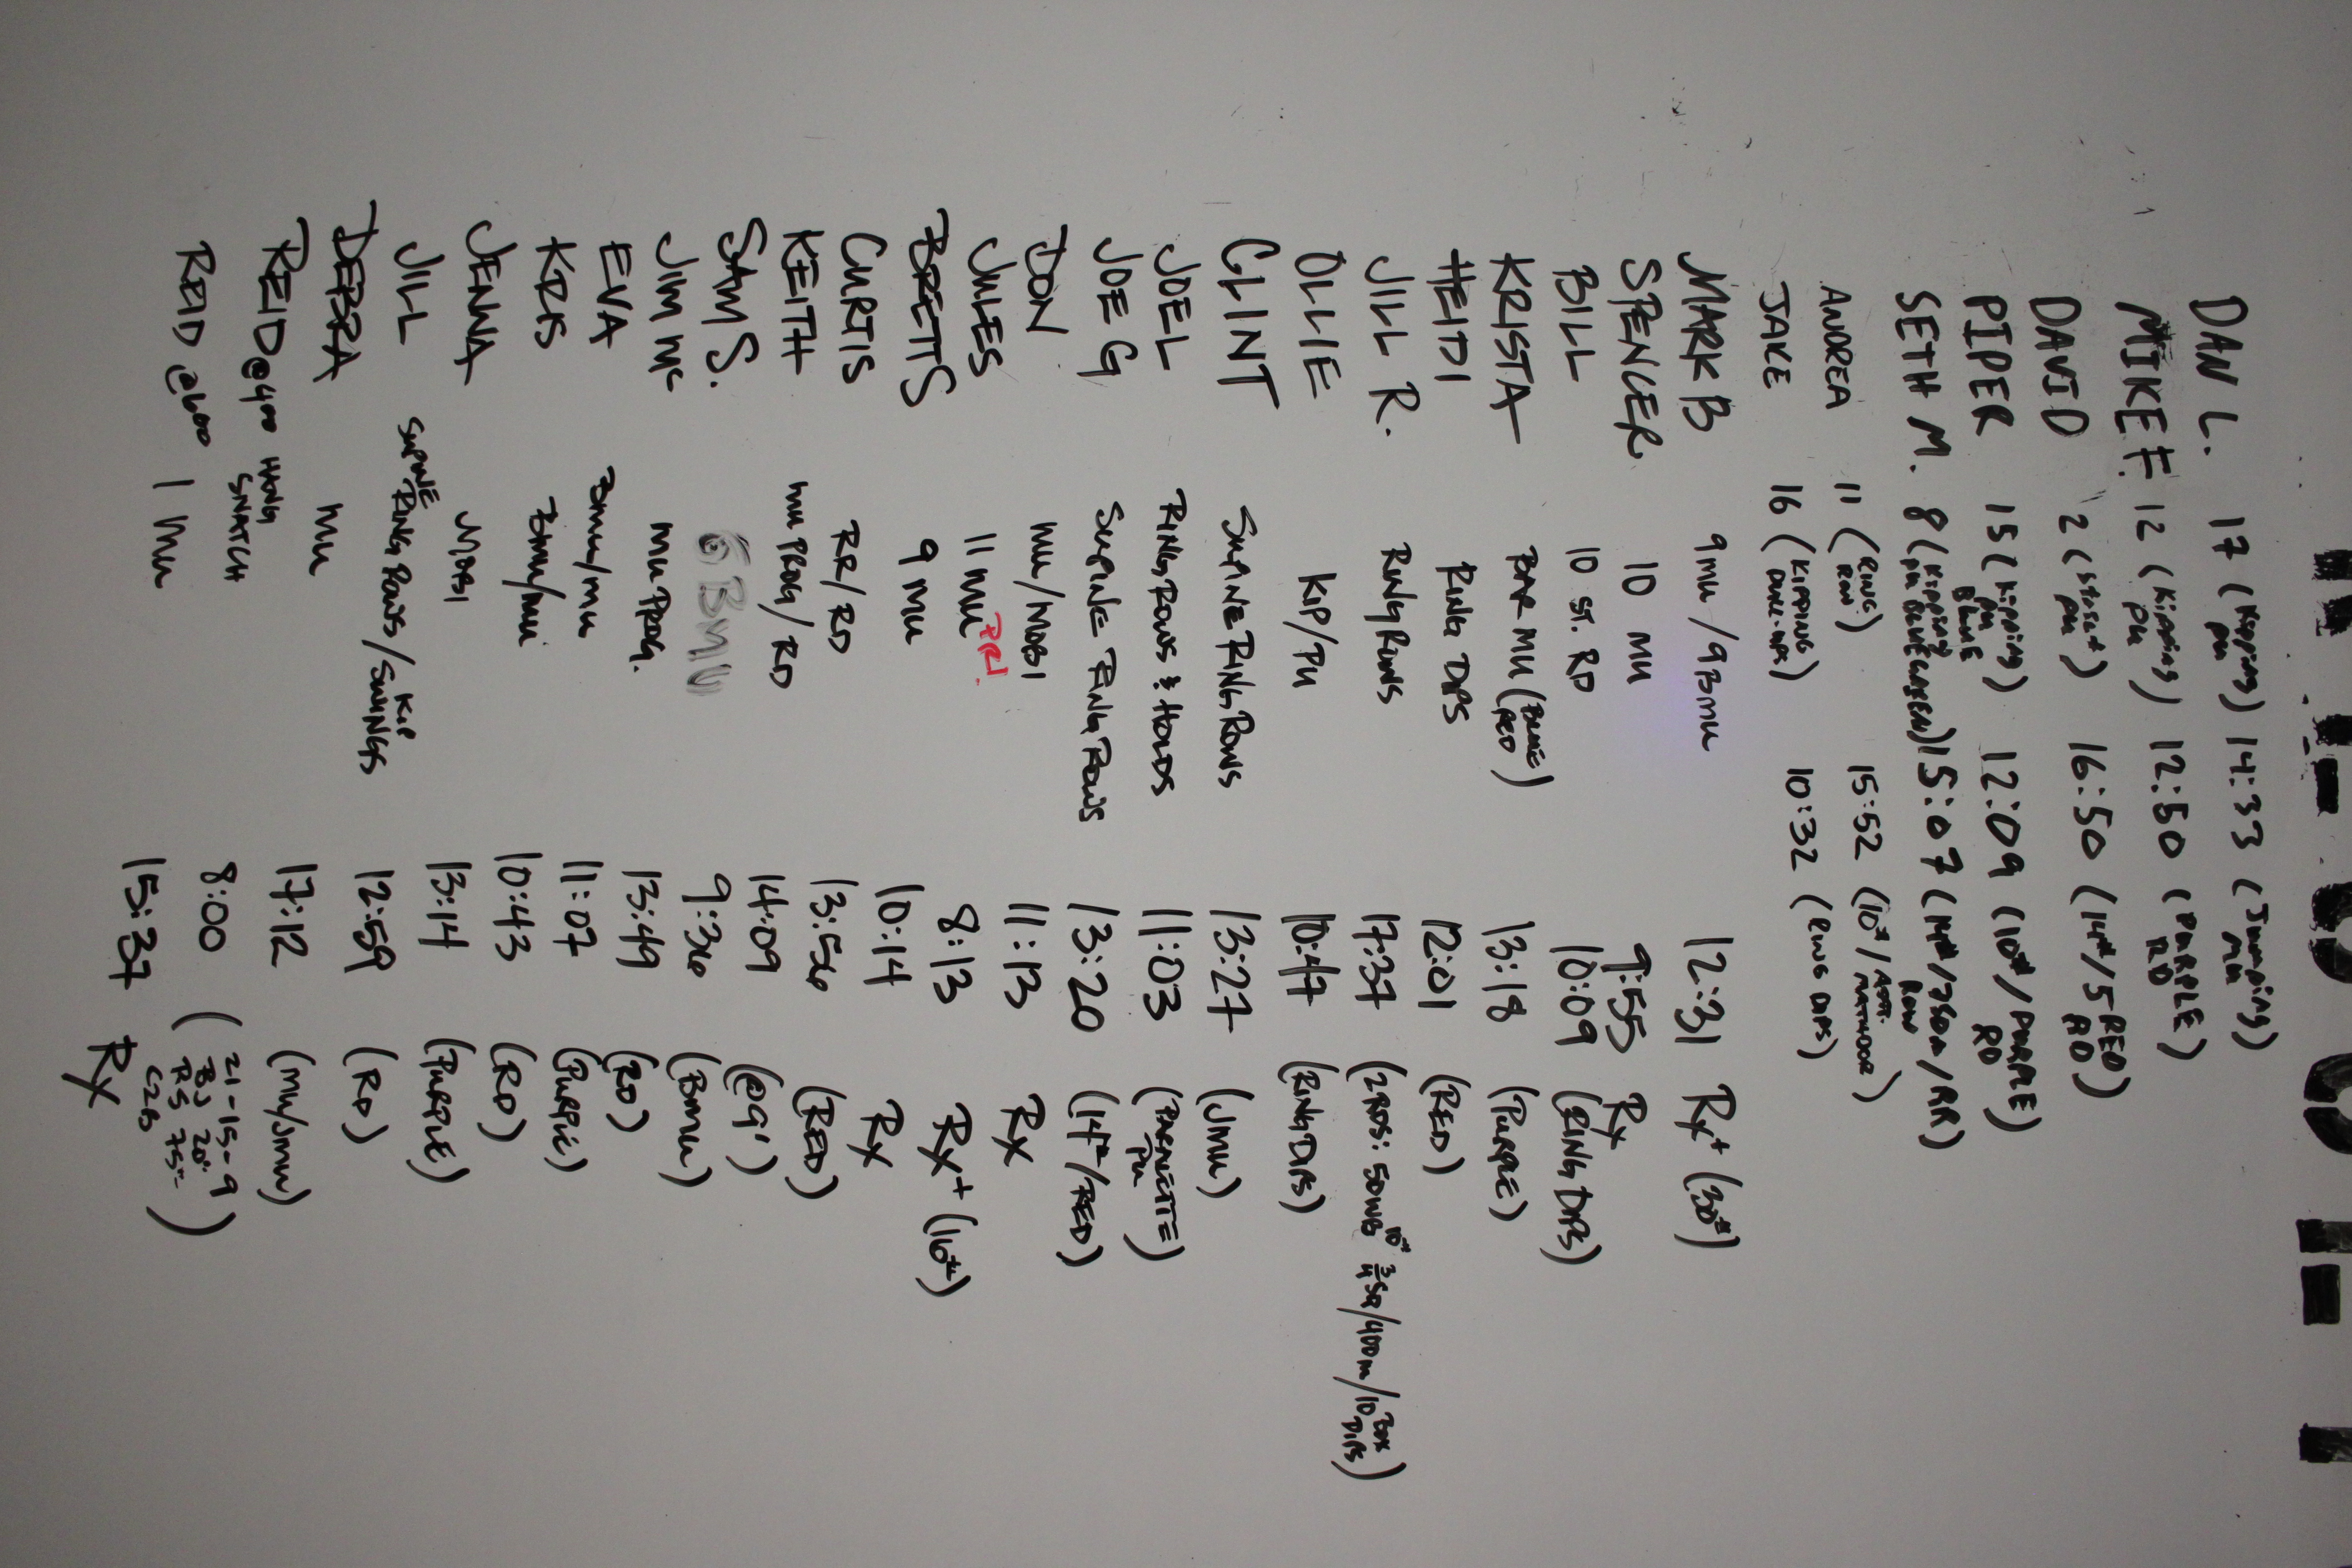 DAN L. 17 (Kipping PU) 14:33 (Jumping MU)
MIKE F. 12 (Kipping PU) 12:50 (PURPLE RD)
DAVID 2 (strict PU) 16:50 (14#/5-RED RD)
PIPER 15 (Kipping PU BLUE) 12:09 (10#/PURPLE RD)
SETH M. 8 (Kipping PU BLUE GREEN) 15:07 (14#/750m ROW/RR)
ANDREA 11 (RING ROW) 15:52 (10#/
JAKE 16 (KIPPING PULL-UPS) 10:32 (RING DIPS)
MARK B 9 MU / 9 BMU 12:31 Rx+ (30#)
SPENCER 10 MU 9:55 Rx
BILL 10 ST. RD 10:09 (RING DIPS)
KRISTA BAR MU (BLUE RED) 13:18 (PURPLE)
HEIDI RING DIPS 12:01 (RED)
JILL R. RING ROWS 17:37 (2 RDS: 50 WB 10# 3/4 SQ/400m/10 BOX DIPS)
OLLIE KIP/PU 10:47 (RING DIPS)
CLINT SUPINE RING ROWS 13:27 (JMU)
JOEL RING ROWS & HOLDS 11:03 (PARALETTE PU)
JOE G SUPINE RING ROWS 13:20 (14#/RED)
DON MU/MOBI 11:13 Rx
JULES 11 MU PR! 8:13 Rx+ (16#)
BRETT S 9 MU 10:14 Rx
CURTIS RR/RD 13:56 (RED)
KEITH MU PROG/RD 14:09 (@9')
SAM S. 6 BMU 9:36 (BMU)
JIM Mc MU PROG. 13:49 (RD)
EVA BMU/MU 11:07 (PURPLE)
KRIS BMU/MU 10:43 (RD)
JENNA MOBI 13:14 (PURPLE)
JILL SUPINE RING ROWS/KIP SWINGS 12:59 (RD)
DEBRA MU 17:12 (MU/JMU)
REID @400 HANG SNATCH 8:00 (21-15-9 BJ 20" PS 75# C2B)
REID @600 1 MU 15:37 Rx